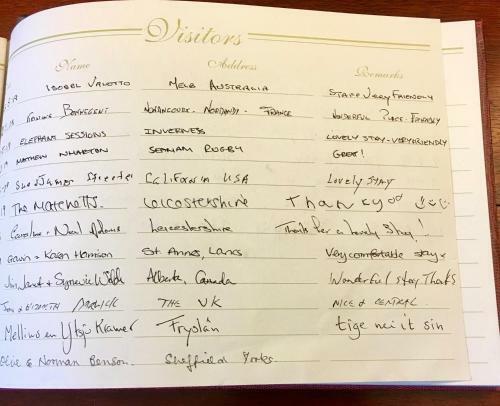 Visitors
Name Address Remarks
ISOBEL VALOTTO MELB AUSTRALIA STAFF VERY FRIENDLY
NORMANDI - FRANCE WONDERFUL PLACE. FRIENDLY
ELEPHANT SESSIONS INVERNESS LOVELY STAY - VERY FRIENDLY
MATHEW WHARTON RUGBY GREAT!
Streeter CALIFORNIA USA LOVELY STAY
The Leicestershire Thank you
Caroline + Neal Adams Leicestershire Thanks for a lovely stay!
Gavin & Karen Harrison St Annes, Lancs Very comfortable stay
Jim, Janet & Alberta, Canada Wonderful stay Thanks
THE UK NICE & CENTRAL
Mellius en Ytsje Kramer Fryslân tige nei it sin
Olive & Norman Benson. Sheffield Yorks.